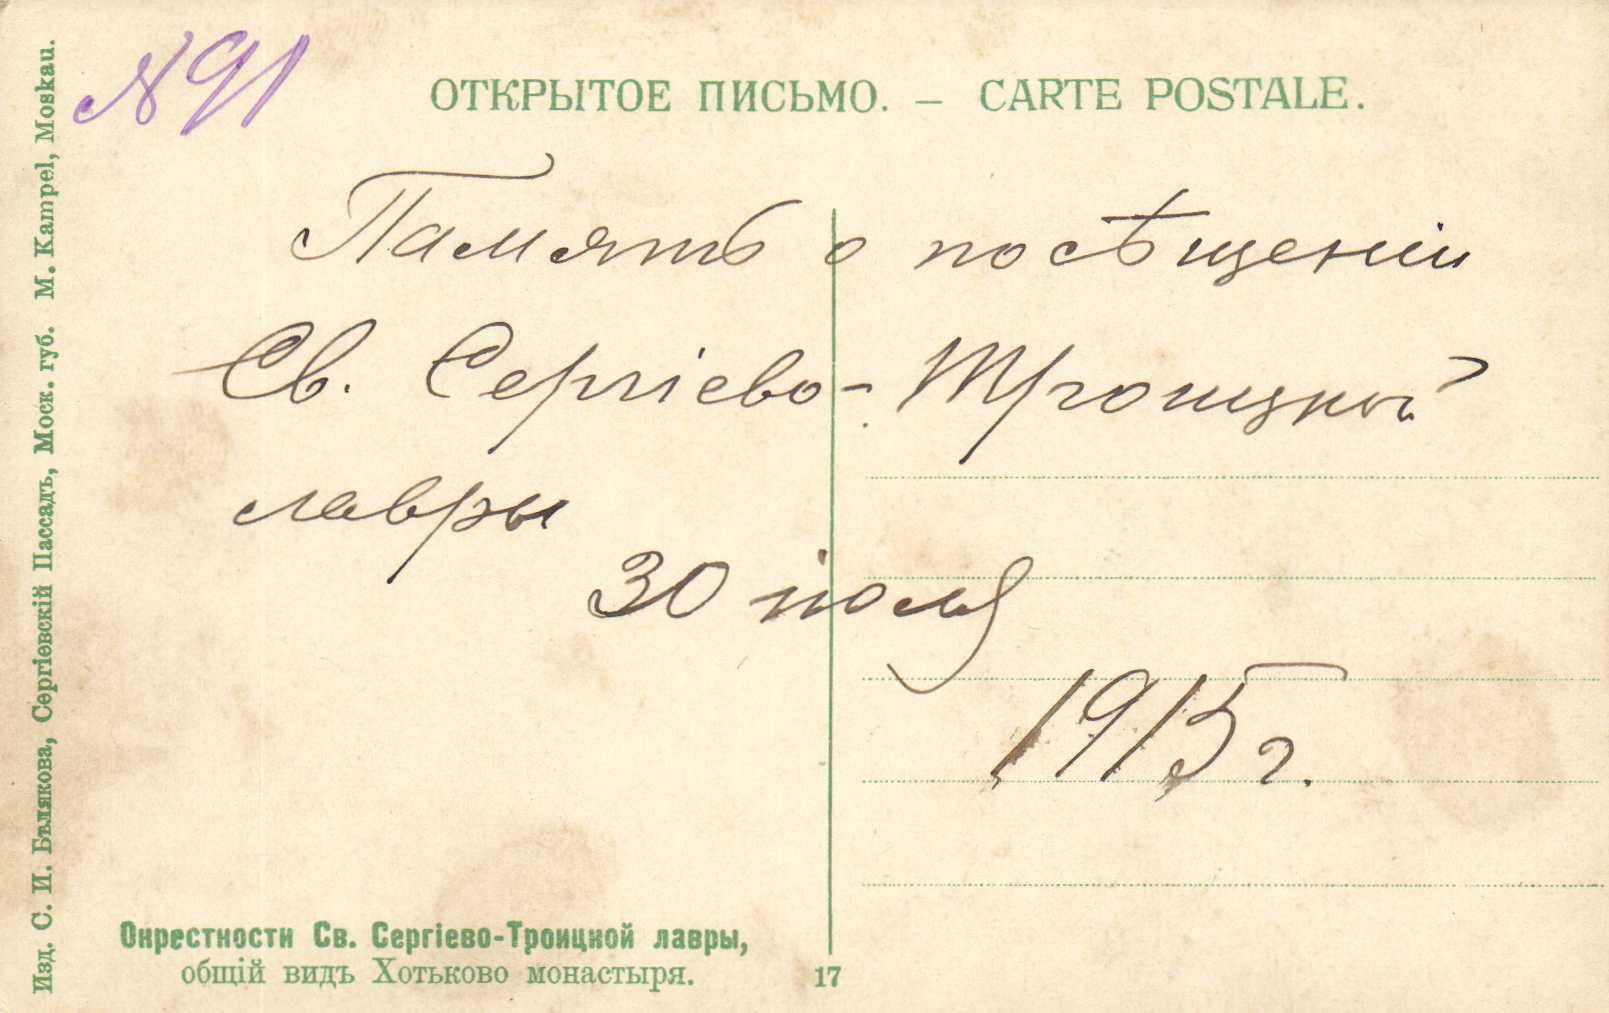 № 91
ОТКРЫТОЕ ПИСЬМО. – CARTE POSTALE.
Память о посѣщеніи
Св. Сергіево-Троицкой
лавры
30 іюля
1915 г.
Окрестности Св. Сергіево-Троицкой лавры,
общій видъ Хотьково монастыря.
17
Изд. С. И. Бѣлякова, Сергіевскій Пассадъ, Моск. губ. М. Kampel, Moskau.